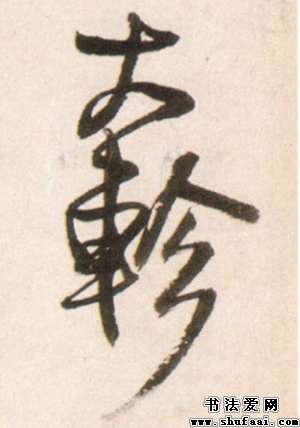 大軫
书法爱网
www.shufaai.com